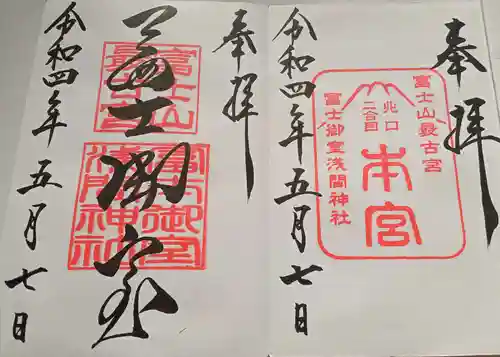 奉拝
富士山最古宮
北口
二合目
本宮
富士御室浅間神社
令和四年五月七日
奉拝
冨士御室
富士山
最古宮
富士御室
浅間神社
令和四年五月七日